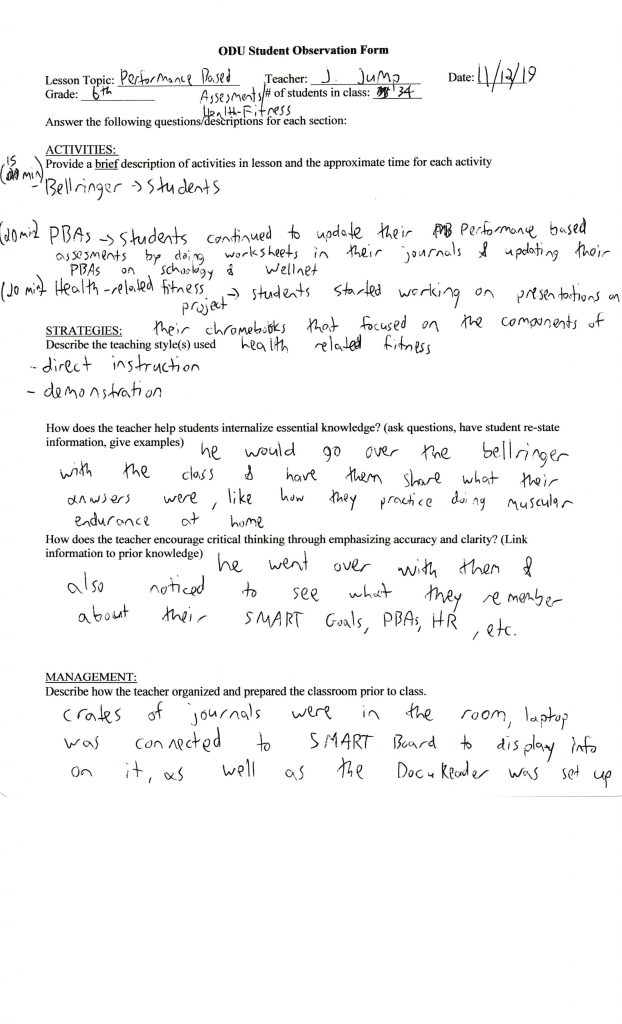 ODU Student Observation Form
Lesson Topic: Performance Based Teacher: J. Jump Date: 11/12/19
Grade: 6th Assesments/ # of students in class: 34
Health-Fitness
Answer the following questions/descriptions for each section:
ACTIVITIES:
Provide a brief description of activities in lesson and the approximate time for each activity
(15 min) - Bellringer → Students
(20 min) PBAs → Students continued to update their Performance based
assesments by doing worksheets in their journals & updating their
PBAs on schoology & Wellnet
(10 min) Health-related fitness project → students started working on presentations on
STRATEGIES: their chromebooks that focused on the components of
Describe the teaching style(s) used health related fitness
- direct instruction
- demonstration
How does the teacher help students internalize essential knowledge? (ask questions, have student re-state
information, give examples) he would go over the bellringer
with the class & have them share what their
anwsers were, like how they practice doing muscular
endurance at home
How does the teacher encourage critical thinking through emphasizing accuracy and clarity? (Link
information to prior knowledge) he went over with them &
also noticed to see what they remember
about their SMART Goals, PBAs, HR, etc.
MANAGEMENT:
Describe how the teacher organized and prepared the classroom prior to class.
crates of journals were in the room, laptop
was connected to SMART Board to display info
on it, as well as the DocuReader was set up